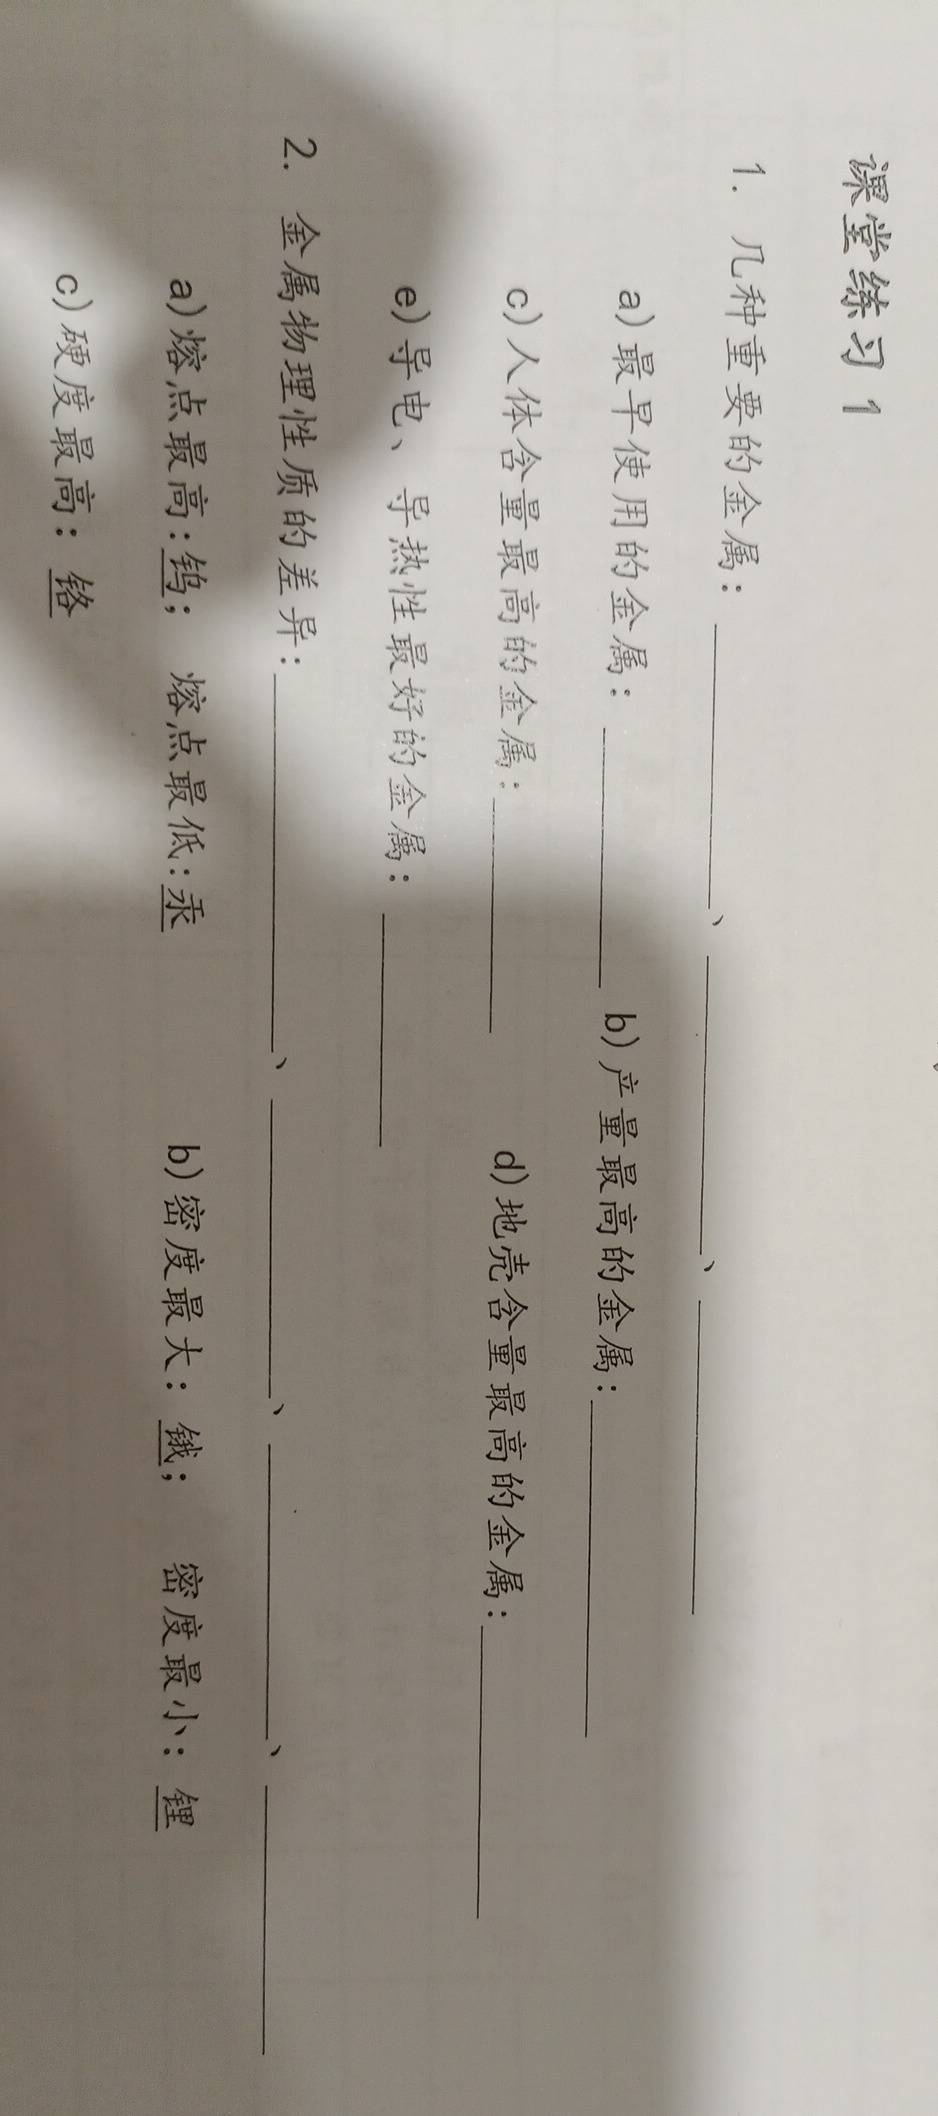 课堂练习 1
1. 几种重要的金属：________、________、________
a)最早使用的金属：________ b)产量最高的金属：________
c)人体含量最高的金属：________ d)地壳含量最高的金属：________
e)导电、导热性最好的金属：________
2. 金属物理性质的差异：________、________、________、________
a)熔点最高：钨； 熔点最低：汞 b)密度最大：锇； 密度最小：锂
c)硬度最高：铬